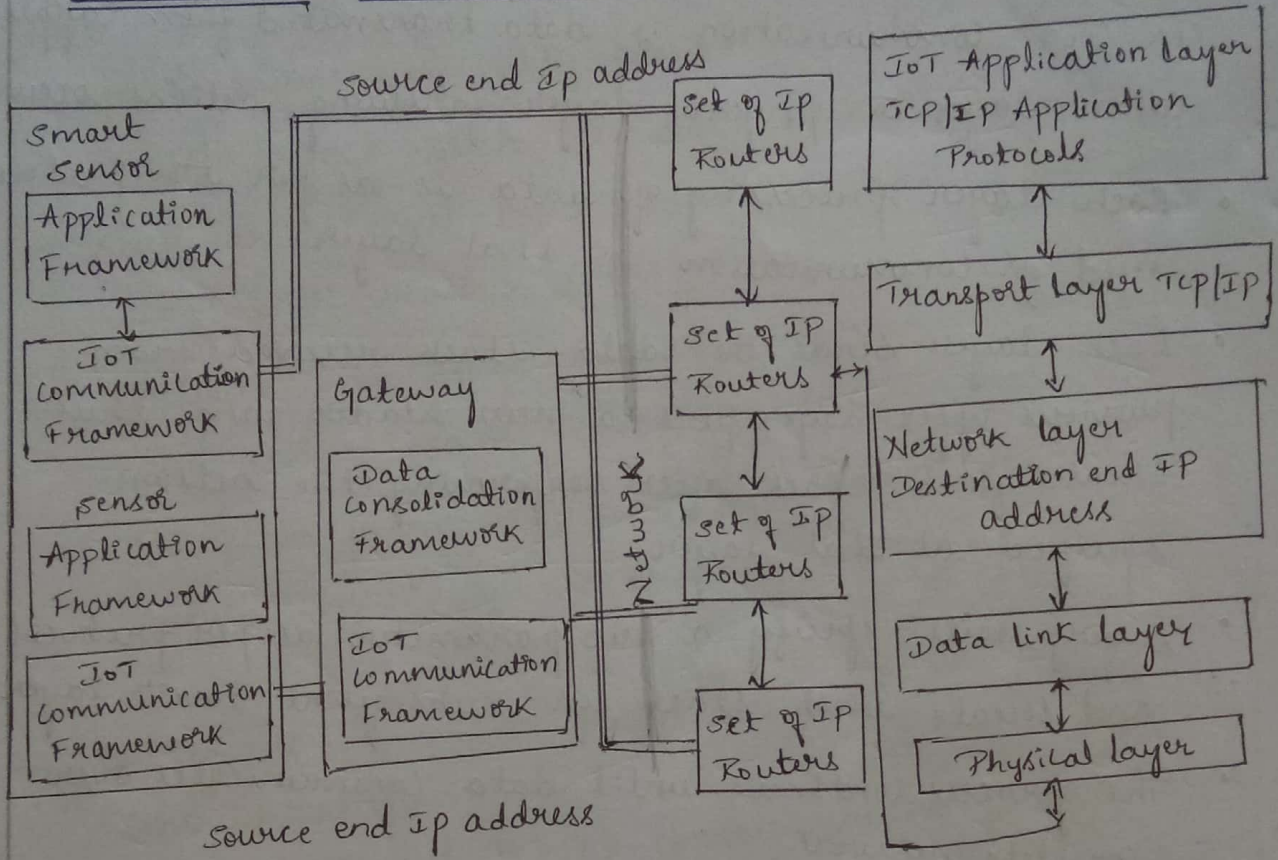 Source end Ip address
Smart
Sensor
Application
Framework
IoT
Communication
Framework
Sensor
Application
Framework
IoT
Communication
Framework
Gateway
Data
Consolidation
Framework
IoT
Communication
Framework
Network
Set of Ip
Routers
Set of IP
Routers
Set of IP
Routers
Set of IP
Routers
IoT Application Layer
TCP/IP Application
Protocols
Transport layer TCP/IP
Network layer
Destination end IP
address
Data link layer
Physical layer
Source end Ip address